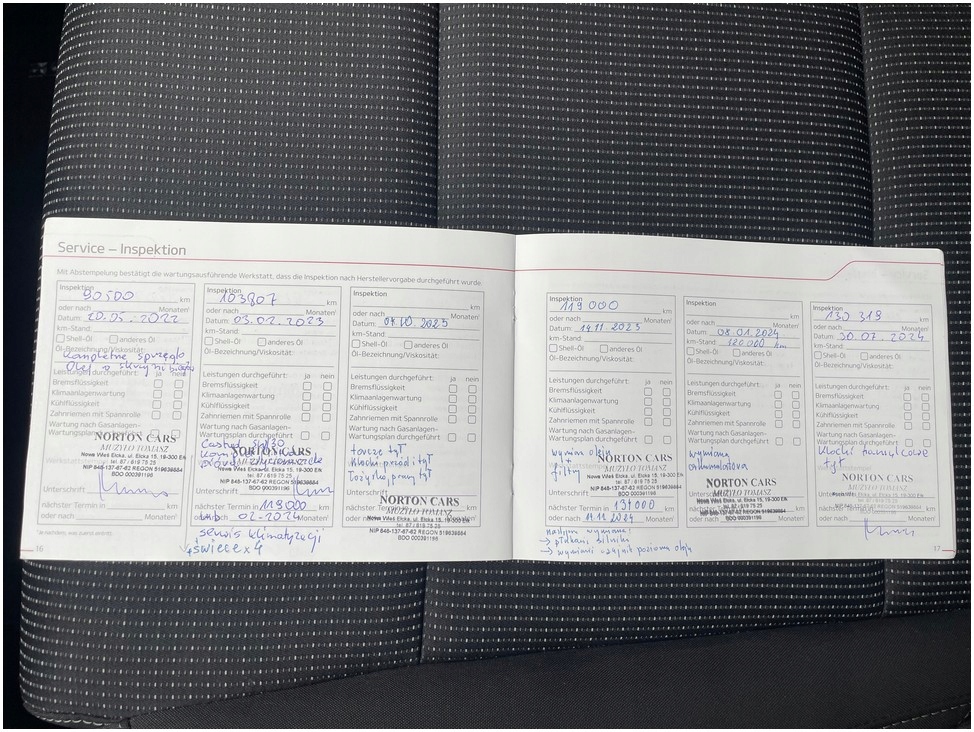 Service – Inspektion
Mit Abstempelung bestätigt die wartungsausführende Werkstatt, dass die Inspektion nach Herstellervorgabe durchgeführt wurde
Inspektion
90500 km
oder nach Monaten
Datum: 20.05.2022
km-Stand:
Shell-Öl anderes Öl
Öl-Bezeichnung/Viskosität:
Kompletne sprzęgło
Olej w skrzyni biegów
Leistungen durchgeführt: ja nein
Bremsflüssigkeit
Klimaanlagenwartung
Kühlflüssigkeit
Zahnriemen mit Spannrolle
Wartung nach Gasanlagen-
Wartungsplan
NORTON CARS
MUZYŁO TOMASZ
Nowa Wieś Ełcka, ul. Ełcka 15, 19-300 Ełk
tel. 87 / 619 75 25
NIP 848-137-67-62 REGON 519639884
BDO 000391196
Unterschrift
nächster Termin in km
oder nach Monaten
16
Inspektion
103807 km
oder nach Monaten
Datum: 03.02.2023
km-Stand:
Shell-Öl anderes Öl
Öl-Bezeichnung/Viskosität:
Leistungen durchgeführt: ja nein
Bremsflüssigkeit
Klimaanlagenwartung
Kühlflüssigkeit
Zahnriemen mit Spannrolle
Wartung nach Gasanlagen-
Wartungsplan durchgeführt
Castrol 5W30
NORTON CARS
MUZYŁO TOMASZ
Nowa Wieś Ełcka, ul. Ełcka 15, 19-300 Ełk
tel. 87 / 619 75 25
NIP 848-137-67-62 REGON 519639884
BDO 000391196
Unterschrift
nächster Termin in 118000 km
lub 02-2024 Monaten
serwis klimatyzacji
+ świece x 4
Inspektion
km
oder nach Monaten
Datum: 04.10.2023
km-Stand:
Shell-Öl anderes Öl
Öl-Bezeichnung/Viskosität:
Leistungen durchgeführt: ja nein
Bremsflüssigkeit
Klimaanlagenwartung
Kühlflüssigkeit
Zahnriemen mit Spannrolle
Wartung nach Gasanlagen-
Wartungsplan durchgeführt
tarcze tył
Klocki przód i tył
Łożysko prawy tył
NORTON CARS
MUZYŁO TOMASZ
Nowa Wieś Ełcka, ul. Ełcka 15, 19-300 Ełk
tel. 87 / 619 75 25
NIP 848-137-67-62 REGON 519639884
BDO 000391196
Inspektion
119000 km
oder nach Monaten
Datum: 14.11.2023
km-Stand:
Shell-Öl anderes Öl
Öl-Bezeichnung/Viskosität:
Leistungen durchgeführt: ja nein
Bremsflüssigkeit
Klimaanlagenwartung
Kühlflüssigkeit
Zahnriemen mit Spannrolle
Wartung nach Gasanlagen-
Wartungsplan durchgeführt
wymiana oleju
+
filtry
NORTON CARS
MUZYŁO TOMASZ
Nowa Wieś Ełcka, ul. Ełcka 15, 19-300 Ełk
tel. 87 / 619 75 25
NIP 848-137-67-62 REGON 519639884
BDO 000391196
Unterschrift
nächster Termin in 131000 km
oder nach 14.11.2024 Monaten
→ płukanie silnika
→ wymienić czujnik poziomu oleju
Inspektion
km
oder nach Monaten
Datum: 08.01.2024
km-Stand: 120000 km
Shell-Öl anderes Öl
Öl-Bezeichnung/Viskosität:
Leistungen durchgeführt: ja nein
Bremsflüssigkeit
Klimaanlagenwartung
Kühlflüssigkeit
Zahnriemen mit Spannrolle
Wartung nach Gasanlagen-
Wartungsplan durchgeführt
wymiana
akumulatora
NORTON CARS
MUZYŁO TOMASZ
Nowa Wieś Ełcka, ul. Ełcka 15, 19-300 Ełk
tel. 87 / 619 75 25
NIP 848-137-67-62 REGON 519639884
BDO 000391196
nächster Termin in km
oder nach Monaten
Inspektion
130 318 km
oder nach Monaten
Datum: 30.07.2024
km-Stand:
Shell-Öl anderes Öl
Öl-Bezeichnung/Viskosität:
Leistungen durchgeführt: ja nein
Bremsflüssigkeit
Klimaanlagenwartung
Kühlflüssigkeit
Zahnriemen mit Spannrolle
Wartung nach Gasanlagen-
Wartungsplan durchgeführt
Klocki hamulcowe
tył
NORTON CARS
MUZYŁO TOMASZ
tel. 87 / 619 75 25
NIP 848-137-67-62 REGON 519639884
BDO 000391196
nächster Termin in km
oder nach Monaten
17